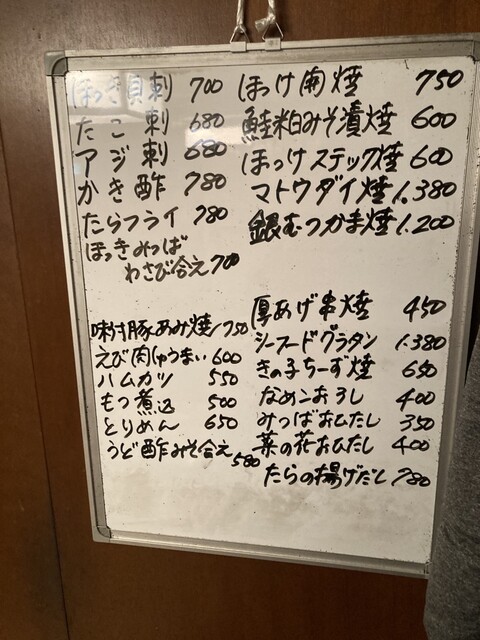 ほっき貝刺 700
たこ刺 680
アジ刺 680
かき酢 780
たらフライ 780
ほっきみつば
わさび合え 700
味付豚あみ焼 750
えび肉しゅうまい 600
ハムカツ 550
もつ煮込 500
とりめん 650
うど酢みそ合え 580
ほっけ(開)焼 750
鮭粕みそ漬焼 600
ほっけスティック焼 600
マトウダイ焼 1.380
銀むつかま焼 1.200
厚あげ串焼 450
シーフードグラタン 1.380
きの子ちーず焼 650
なめこおろし 400
みつばおひたし 350
菜の花おひたし 400
たらの揚げだし 780